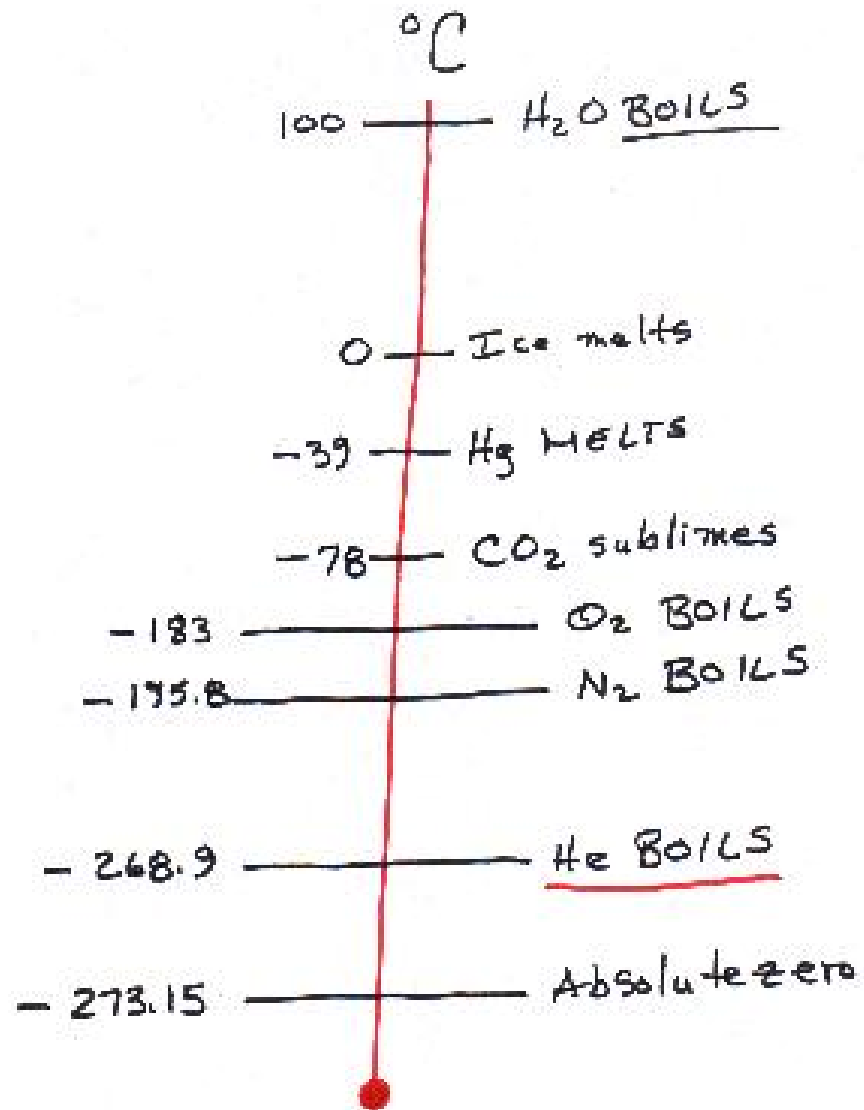 °C
100 H₂O BOILS
0 Ice melts
-39 Hg MELTS
-78 CO₂ sublimes
-183 O₂ BOILS
-195.8 N₂ BOILS
-268.9 He BOILS
-273.15 Absolute zero